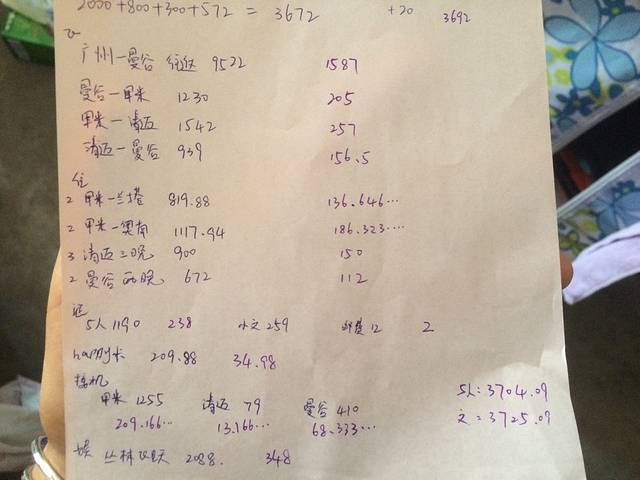 2000+800+300+572 = 3672 +20 3692
飞
广州—曼谷 往返 9522 1587
曼谷—甲米 1230 205
甲米—清迈 1542 257
清迈—曼谷 939 156.5
住
2 甲米—兰塔 819.88 136.646...
2 甲米—奥南 1117.94 186.323....
3 清迈三晚 900 150
2 曼谷两晚 672 112
5人 1190 238 小文 259 邮费 12 2
happy卡 209.88 34.98
接机
甲米 1255 清迈 79 曼谷 410
5人: 3704.09
209.166... 13.166... 68.333...
文: 3725.09
娱 丛林飞跃 2088. 348